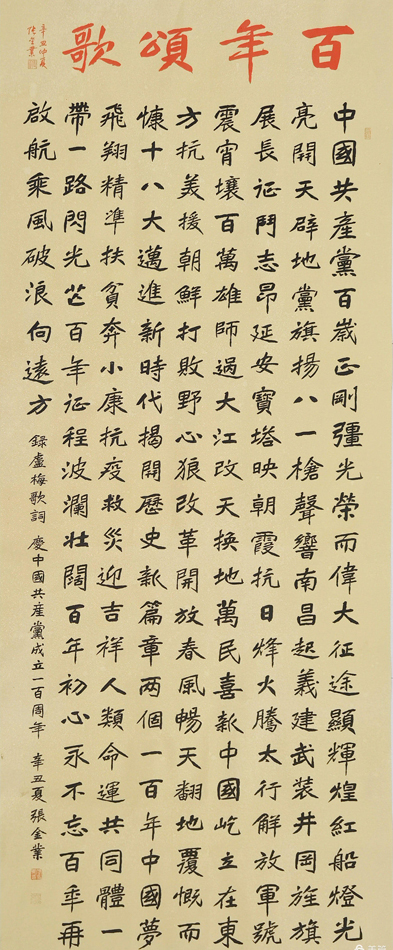 百年頌歌
中國共產黨百歲正剛彊光榮而偉大征途顯輝煌紅船燈光
亮開天辟地黨旗揚八一槍聲響南昌起義建武裝井岡旌旗
展長征鬥志昂延安寶塔映朝霞抗日烽火騰太行解放軍號
震宵壤百萬雄師過大江改天换地萬民喜新中國屹立在東
方抗美援朝鮮打敗野心狼改革開放春風暢天翻地覆慨而
慷十八大邁進新時代揭開歷史新篇章兩個一百年中國夢
飛翔精準扶貧奔小康抗疫救災迎吉祥人類命運共同體一
帶一路閃光芒百年征程波瀾壯闊百年初心永不忘百年再
啟航乘風破浪向遠方 錄盧梅歌詞 慶中國共產黨成立一百周年 辛丑夏張金業
辛丑仲夏
張金業